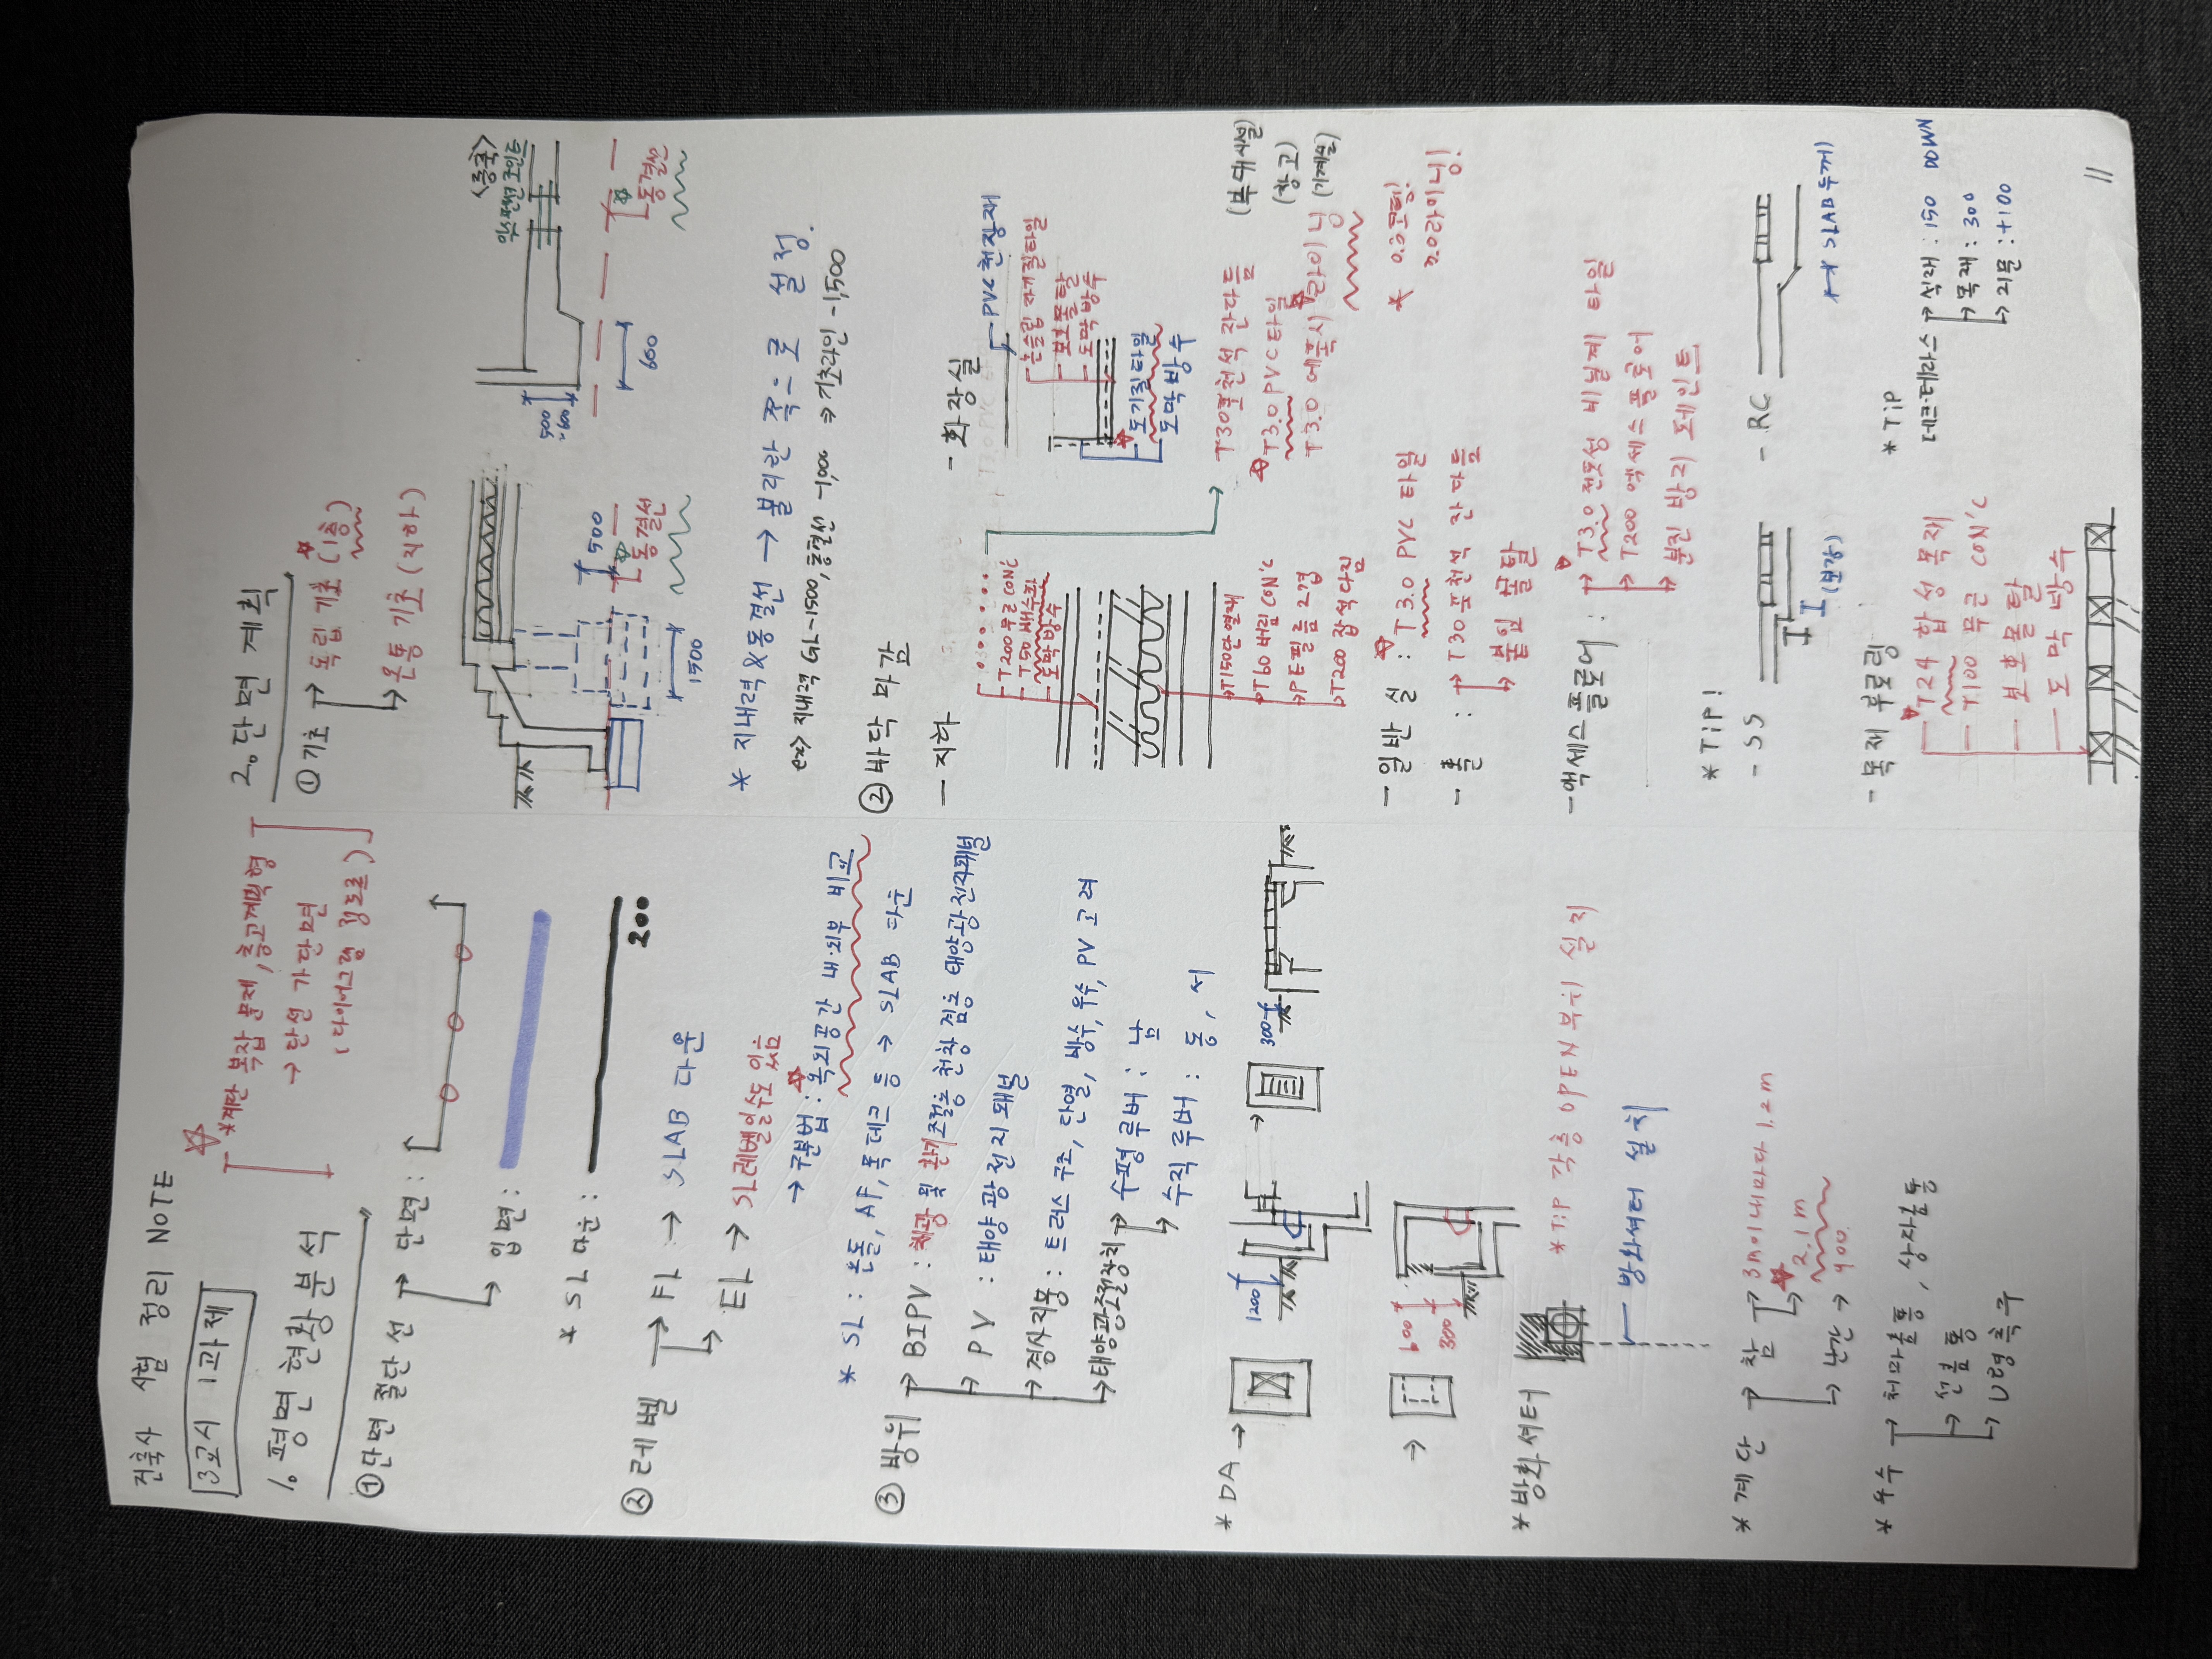 건축사 시험 정리 NOTE
3교시 1과제
*계단 복잡 문제, 층고계획형
→ 단선 가단면
(다이어그램 정도로)
1. 평면 현황 분석
① 단면 절단선 → 단면 :
→ 입면 :
* SL 다운 :
200
② 레벨 → FL → SLAB 다운
→ EL → SL레벨일수도 있음
→ 구분법 : 옥외공간 내·외부 비교
* SL : 온돌, AF, 목데크 등 → SLAB 다운
③ 방위 → BIPV : 채광 및 환기조절용 천창 겸용 태양광전지패널
→ PV : 태양광전지패널
→ 경사지붕 : 트러스 구조, 단열, 방수, 우수, PV 고려
→ 태양광조절장치 → 수평루버 : 남
→ 수직루버 : 동, 서
* DA →
1200
→
300
→
600
300
* 방화셔터
* TIP 각층 OPEN 부위 설치
방화셔터 설치
* 계단 → 참 → 3m이내마다 1.2m
→ 2.1m
→ 난간 → 900
* 우수 → 처마홈통, 상자홈통
→ 선홈통
→ U형측구
2. 단면 계획
① 기초 → 독립기초 (1층)
→ 온통기초 (지하)
500
동결선
1500
<증축>
익스펜션 조인트
500
~600
600
동결선
* 지내력&동결선 → 불리한 쪽으로 설정.
ex> 지내력 GL-1500, 동결선 -1,000 ⇒ 기초라인 -1,500
② 바닥 마감
- 지하
T200 무근CON'C
T50 배수판
도막방수
T150단열재
T60 버림CON'C
PE필름 2겹
T200 잡석다짐
- 화장실
PVC천장재
논슬립 자기질타일
보호몰탈
도막방수
도기질타일
도막방수
T30포천석 잔다듬
T3.0 PVC타일 (부대시설)
(창고)
T3.0 에폭시 라이닝 (기계실)
- 일반실 : T3.0 PVC 타일
* 0.0코팅!
3.0라이닝!
- 홀 : → T30 포천석 잔다듬
→ 붙임 몰탈
- 액세스플로어 : → T3.0 전도성 비닐계 타일
→ T200 액세스 플로어
→ 분진 방지 페인트
* TIP!
- SS
(보강)
- RC
SLAB두께
- 목재 후로링
T24 합성목재
T100 무근 CON'C
보호몰탈
도막방수
* TIP
데크·테라스 → 석재 : 150 DOWN
→ 목재 : 300
→ 리모 : +100
11